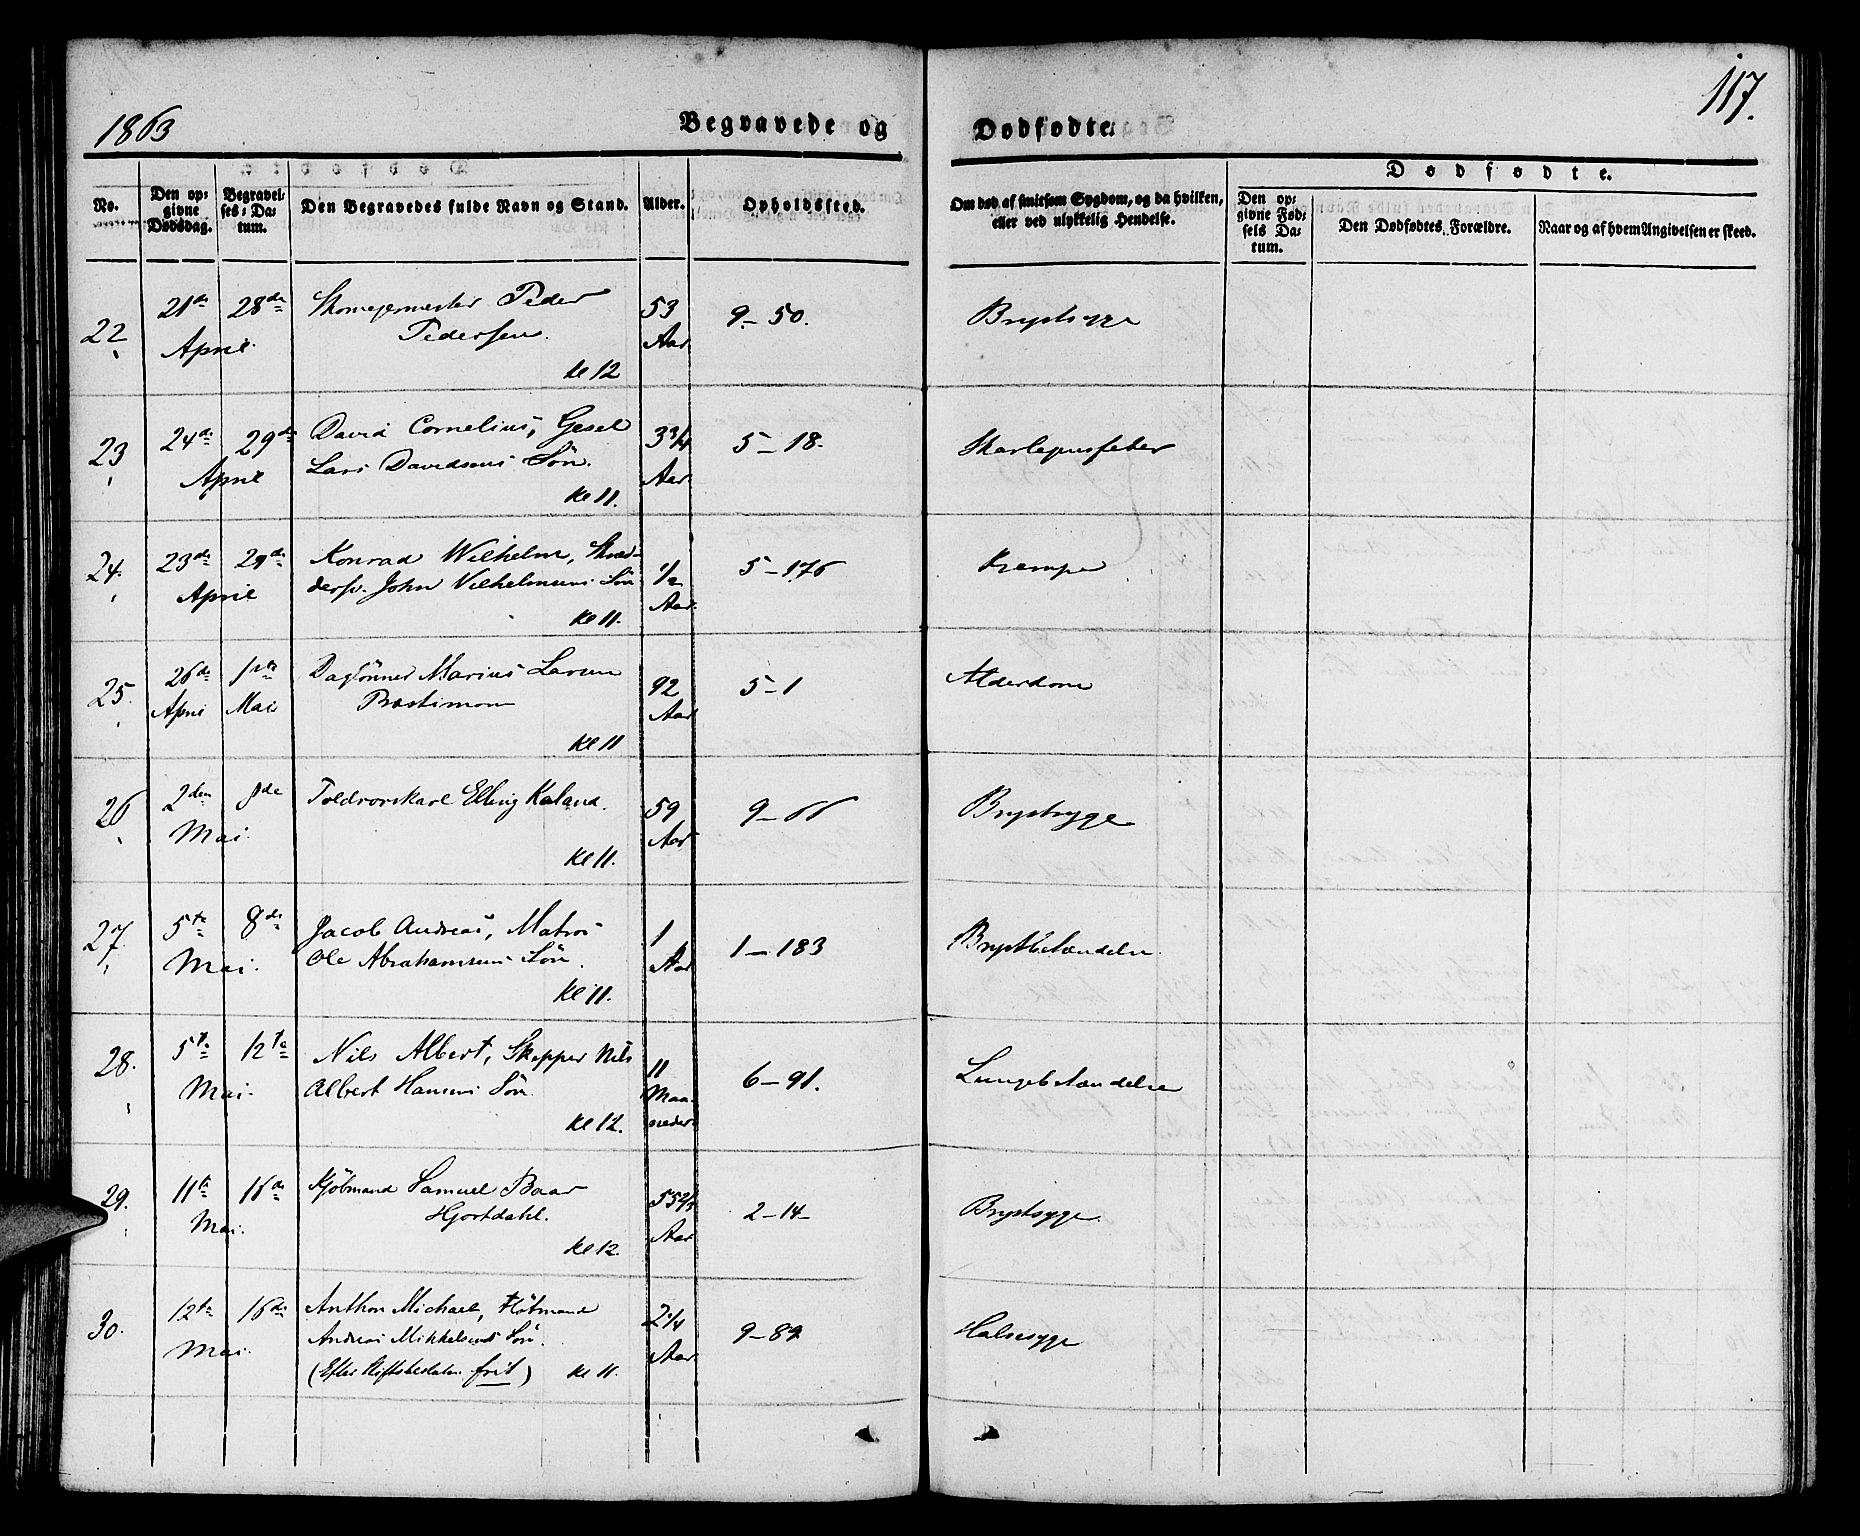 1863
Begravede og
Dødfødte.
117.
No.
Den op-
givne
Dødsdag.
Begravel-
ses-Da-
tum.
Den Begravedes fulde Navn og Stand.
Alder.
Opholdssted.
Om død af smitsom Sygdom, og da hvilken,
eller ved ulykkelig Hendelse.
Dødfødte.
Den op-
givne Fød-
sels Da-
tum.
Den Dødfødtes Forældre.
Naar og af hvem Angivelsen er skeed.
22
21de
April
28de
Skomagermester Peder
Pedersen.
Kl 12
53
Aar
9-50.
Brystsyge
23
24de
April
29de
David Cornelius, Gesel
Lars Davidsens Søn.
Kl 11.
3 3/4
Aar
5-18.
Skarlagensfeber
24.
23de
April
29de
Konrad Wilhelm, Skræd-
dersv. John Vilhelmsens Søn
Kl 11.
1/2
Aar
5-176
Krampe
25.
26de
April
1ste
Mai
Daglønner Marius Larsen
Kl 11
92
Aar
5-1
Alderdom
26
2den
Mai.
8de
Toldrorskarl Elling Kaland.
Kl 11.
59
Aar
9-66
Brystsyge
27.
5te
Mai.
8de
Jacob Andreas, Matros
Ole Abrahamsens Søn.
Kl 11.
1
Aar
1-183
Brystbetændelse.
28.
5te
Mai.
12te
Nils Albert, Skipper Nils
Albert Hansens Søn.
Kl 12.
11
Maa-
neder
6-91.
Lungebetændelse
29.
11te
Mai.
16de
Kjøbmand Samuel Baar
Hjortdahl.
Kl 12.
Aar
2-14-
Brystsyge.
30.
12te
Mai.
16de
Anthon Michael, Kjøbmand
Andreas Mikkelsens Søn.
(Efter frit) Kl 11.
2 1/4
Aar
9-89
Halssyge